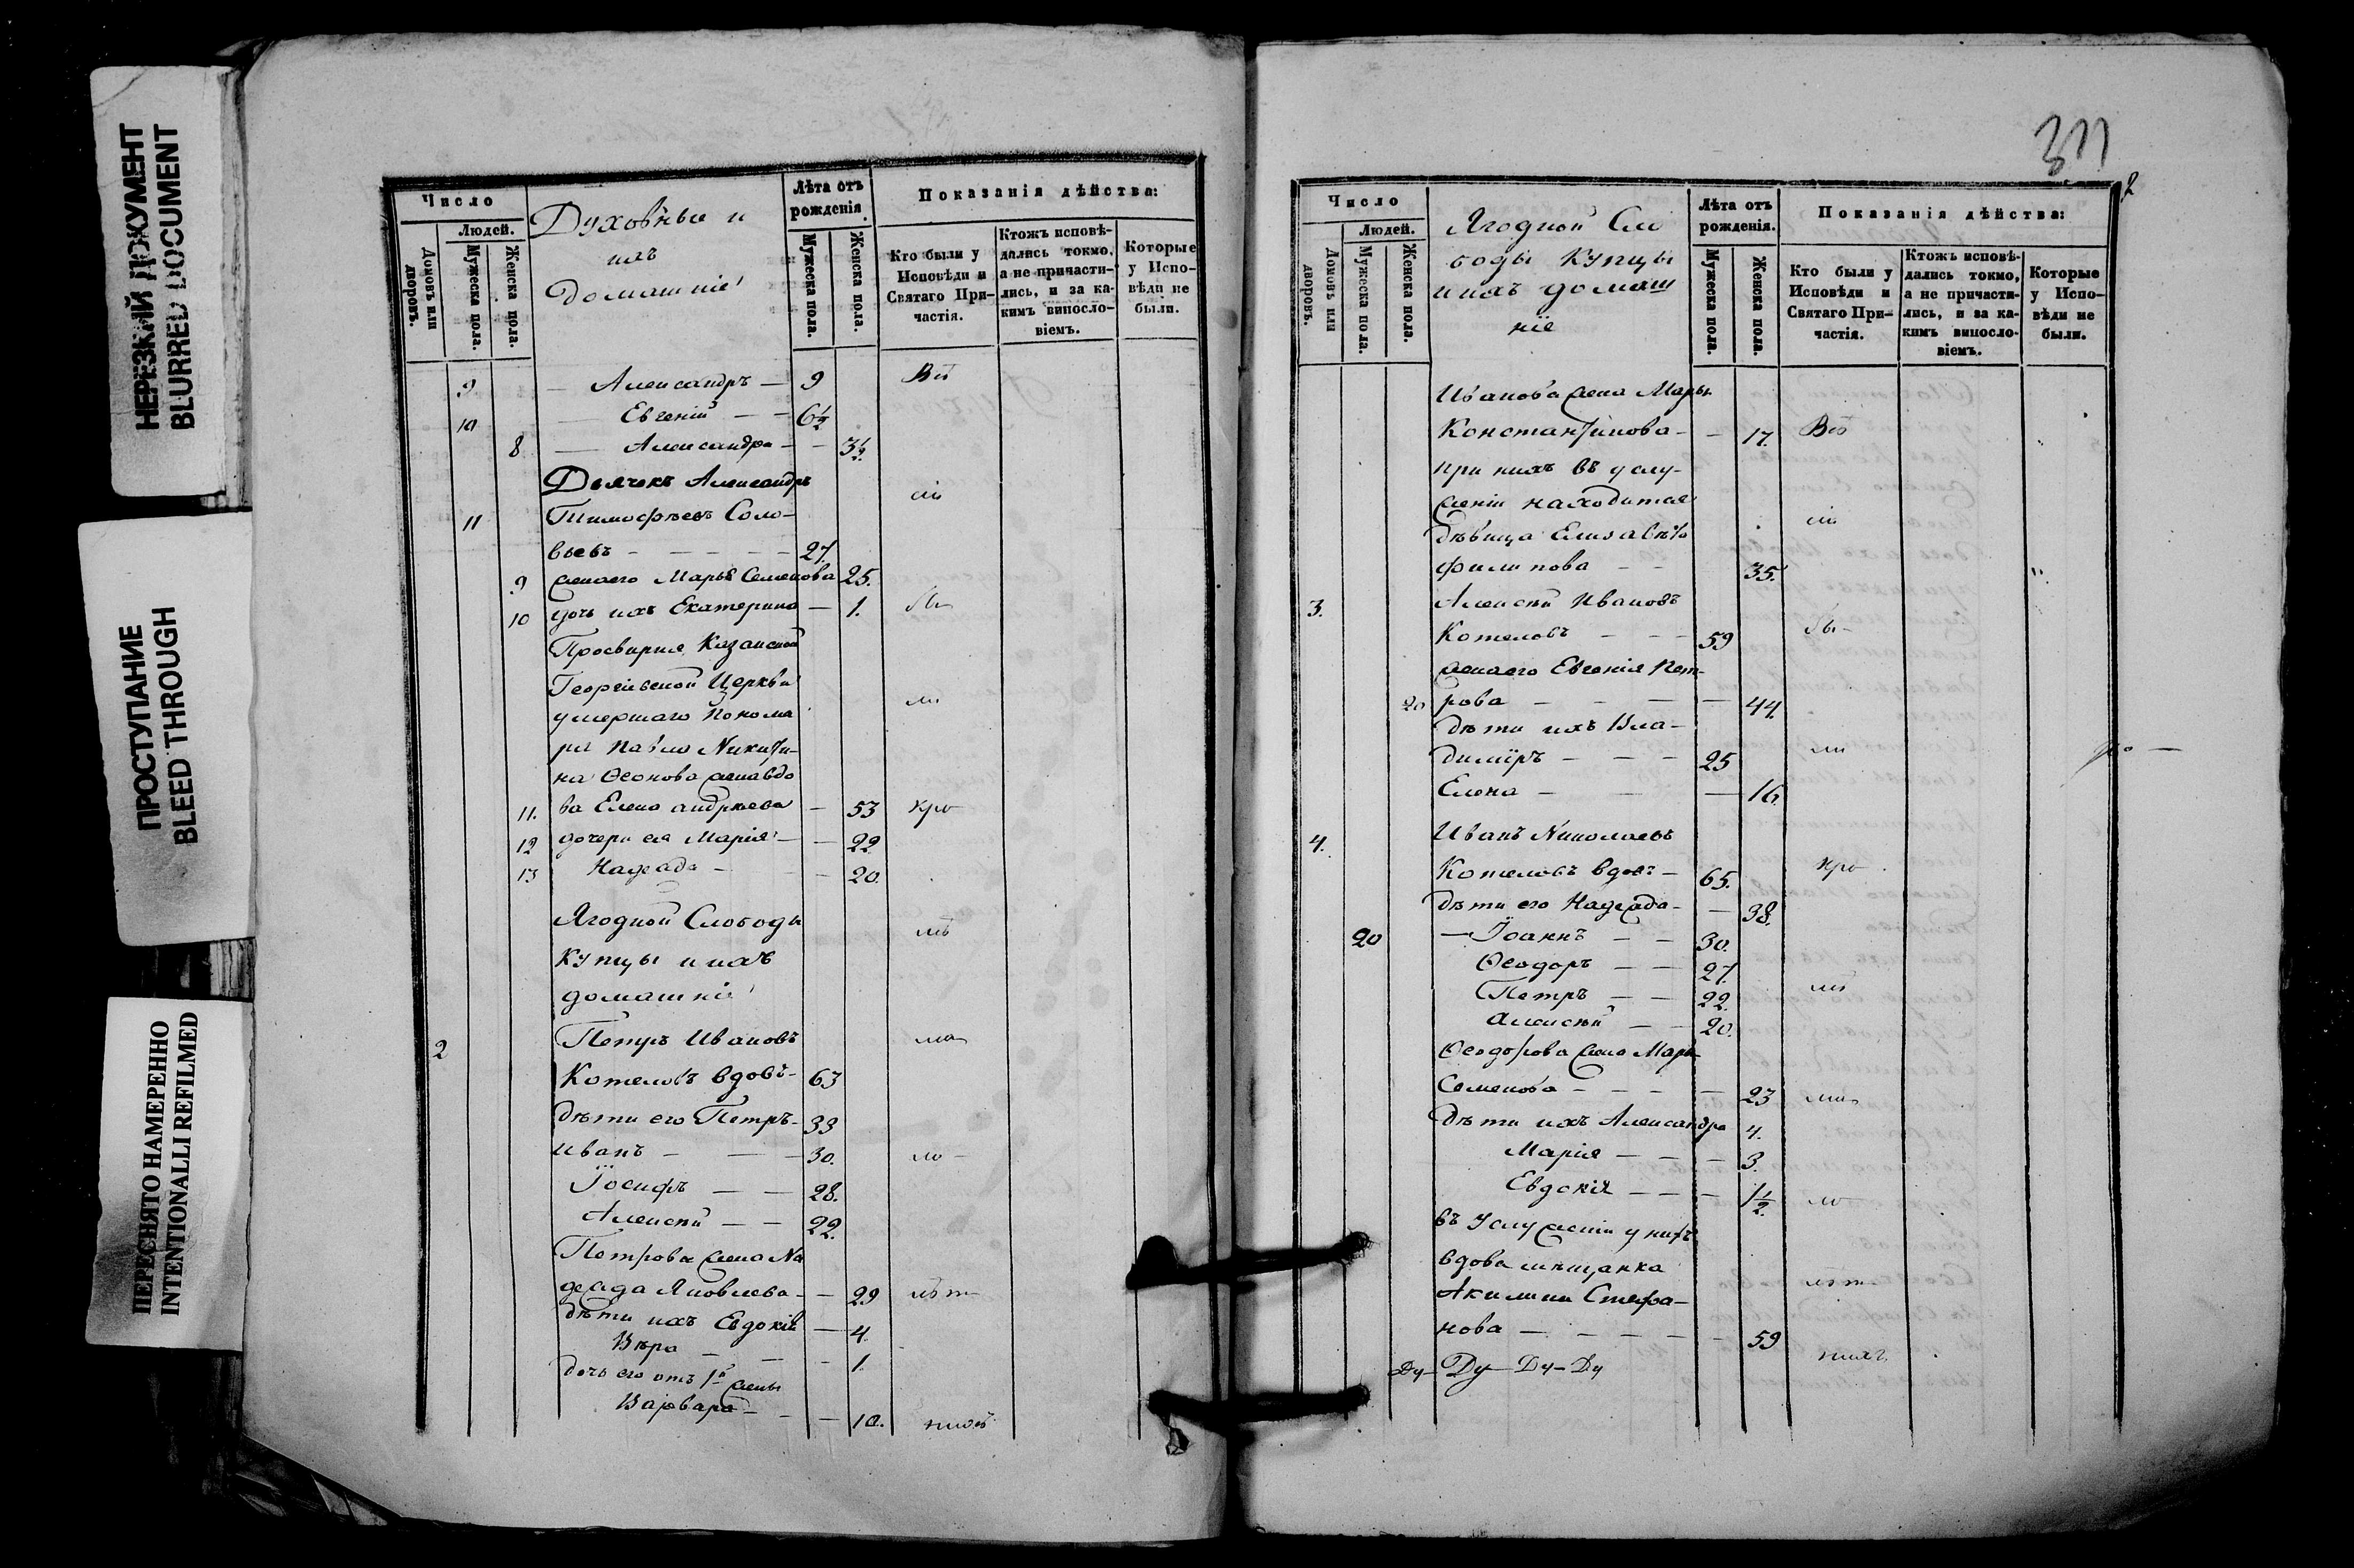 НЕРЕЗКИЙ ДОКУМЕНТ
BLURRED DOCUMENT
ПРОСТУПАНИЕ
BLEED THROUGH
ПЕРЕСНЯТО НАМЕРЕННО
INTENTIONALLI REFILMED
Число
Людей.
Домовъ или дворовъ.
Мужеска пола.
Женска пола.
Духовные и
ихъ
домашніе
Лѣта отъ рожденія
Мужеска пола.
Женска пола.
Показанія дѣйства:
Кто были у Исповѣди и Святаго При-частія.
Ктожъ исповѣ-дались токмо, а не причасти-лись, и за ка-кимъ винословіемъ.
Которые у Испо-вѣди не были.
9 — Александръ — 9
10 — Евгеній — — 6½
8 — Александра — — 3½
Дьячекъ Александръ
11 Тимофѣевъ Соло-
вьевъ — — — — — 27.
9 жена его Марья Семенова 25.
10 дочь ихъ Екатерина — 1.
Просвирня Казанской
Георгіевской Церкви
умершаго Понома
ря Павла Никити-
на Ѳеонова жена вдо
11. ва Елена Андреева — 53
12 дочери ея Марія — — 22
13 Надежда — — 20.
Ягодной Слободы
Купцы и ихъ
домашніе
2 Петръ Ивановъ
Котеловъ вдовъ — 63
дѣти его Петръ — 33
Иванъ — — — 30.
Іосифъ — — 28.
Алексѣй — — 22.
Петрова жена На
дежда Яковлева — — 29
дѣти ихъ Евдокія — 4.
Вѣра — — — 1.
дочь его отъ 1й жены
Варвара — — — 10.
311
2
Число
Людей.
Домовъ или дворовъ.
Мужеска пола.
Женска пола.
Ягодной Сло
боды Купцы
и ихъ домаш
ніе
Лѣта отъ рожденія.
Мужеска пола.
Женска пола.
Показанія дѣйства:
Кто были у Исповѣди и Святаго При-частія.
Ктожъ исповѣ-дались токмо, а не причасти-лись, и за ка-кимъ винословіемъ.
Которые у Испо-вѣди не были.
Иванова жена Марья
Константинова — — 17.
при нихъ въ услу-
женіи находится
дѣвица Елизавѣта
Филипова — — 35.
3. Алексѣй Ивановъ
Котеловъ — — — 59
жена его Евгенія Пет-
20 рова — — — — 44.
дѣти ихъ Вла-
диміръ — — — 25
Елена — — — 16.
4. Иванъ Николаевъ
Котеловъ вдовъ — 65.
дѣти его Надежда — — 38.
20 — Іоаннъ — — 30.
Ѳеодоръ — — 27.
Петръ — — 22.
Алексѣй — — 20.
Ѳеодорова жена Марья
Семенова — — — — 23
дѣти ихъ Александра 4.
Марія — — — 3.
Евдокія — — — 1½
въ услуженіи у нихъ
вдова мѣщанка
Акилина Стефа-
нова — — — — — 59